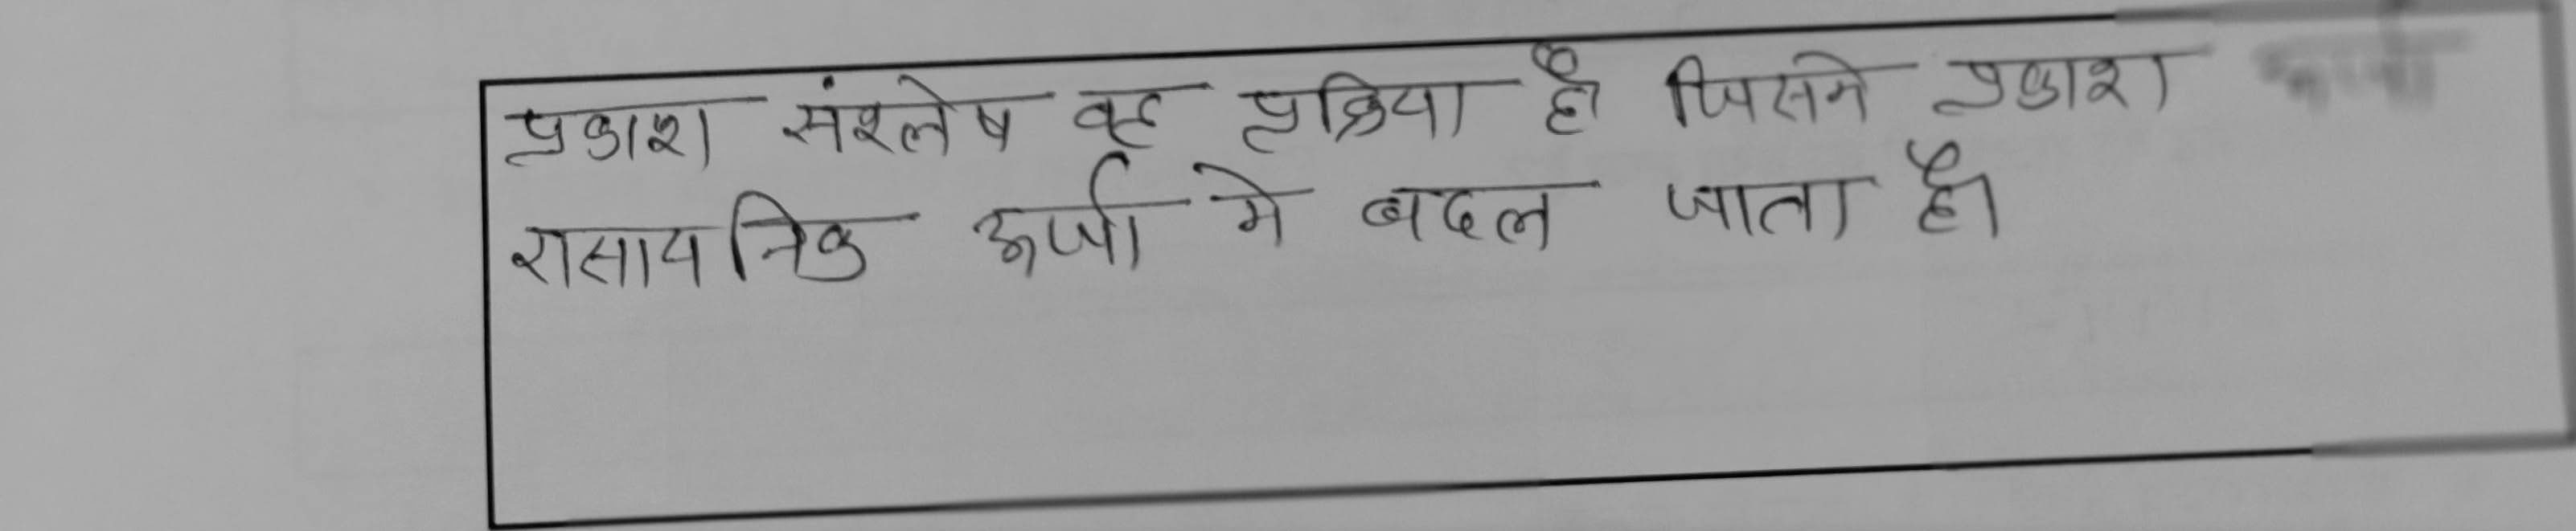 प्रकाश संश्लेष वह प्रक्रिया है जिसमे प्रकाश
रासायनिक ऊर्जा मे बदल जाता है।